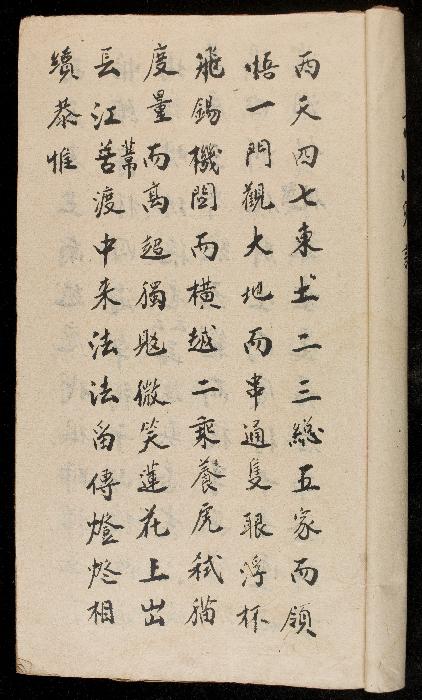 西天四七東土二三總五家而領
悟一門觀大地而串通隻眼浮杯
飛錫機關而橫越二乘養虎弒猫
度量而高超獨脫微笑蓮花上出
長江善渡中来法法留傳燈燈相
續恭惟